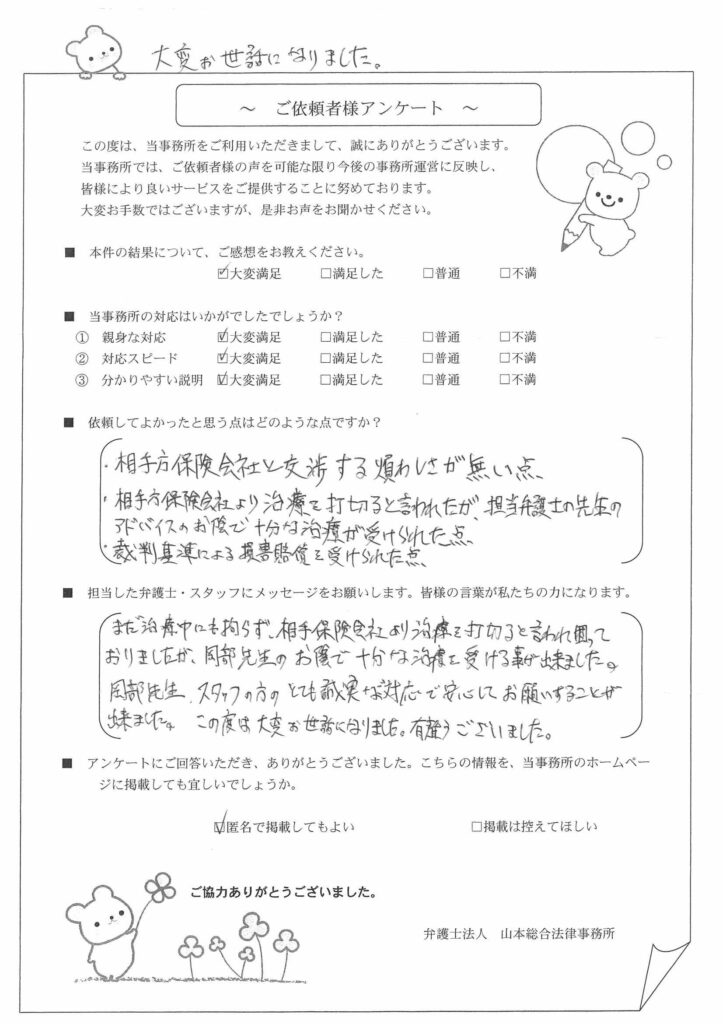 大変お世話になりました。
～ ご依頼者様アンケート ～
この度は、当事務所をご利用いただきまして、誠にありがとうございます。
当事務所では、ご依頼者様の声を可能な限り今後の事務所運営に反映し、
皆様により良いサービスをご提供することに努めております。
大変お手数ではございますが、是非お声をお聞かせください。
■ 本件の結果について、ご感想をお教えください。
☑大変満足 □満足した □普通 □不満
■ 当事務所の対応はいかがでしたでしょうか？
① 親身な対応 ☑大変満足 □満足した □普通 □不満
② 対応スピード ☑大変満足 □満足した □普通 □不満
③ 分かりやすい説明 ☑大変満足 □満足した □普通 □不満
■ 依頼してよかったと思う点はどのような点ですか？
・相手方保険会社と交渉する煩わしさが無い点、
・相手方保険会社より治療を打切ると言われたが、担当弁護士の先生の
アドバイスのお陰で十分な治療が受けられた点、
・裁判基準による損害賠償を受けられた点、
■ 担当した弁護士・スタッフにメッセージをお願いします。皆様の言葉が私たちの力になります。
まだ治療中にも拘らず、相手保険会社より治療を打切ると言われ困って
おりましたが、岡部先生のお陰で十分な治療を受ける事が出来ました。
岡部先生、スタッフの方のとても誠実な対応で安心してお願いすることが
出来ました。この度は大変お世話になりました。有難うございました。
■ アンケートにご回答いただき、ありがとうございました。こちらの情報を、当事務所のホームペー
ジに掲載しても宜しいでしょうか。
☑匿名で掲載してもよい □掲載は控えてほしい
ご協力ありがとうございました。
弁護士法人 山本総合法律事務所